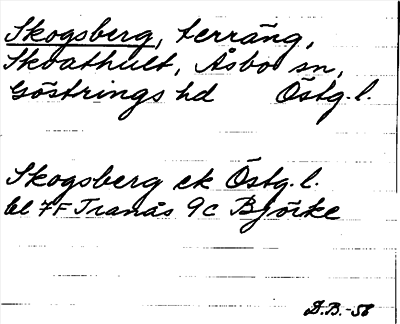 Skogsberg, terräng,
Skoathult, Åsbo sn,
Göstrings hd Östg.l.
Skogsberg ek Östg.l.
bl 7F Tranås 9c Björke
D.B. -58